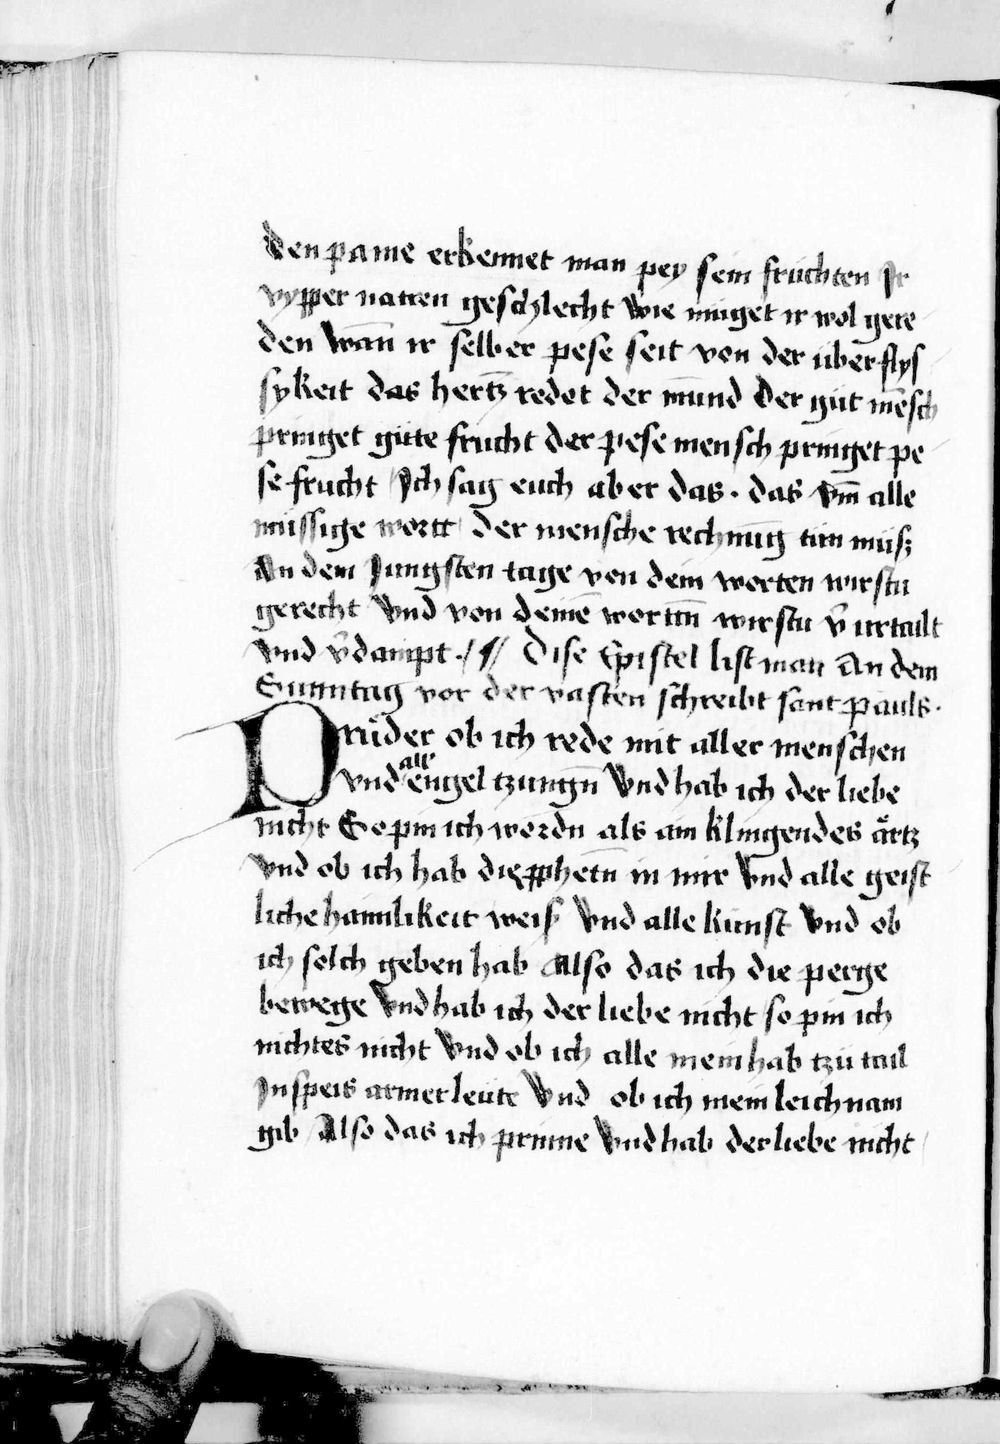 den pame erkennet man pey sein früchten Ir
vypper natren geschlecht wie müget ir wol gere
den wañ ir selber pese seit von der überflys
sykeit das hertz redet der mund Der gůt mensch
pringet gůte frucht der pese mensch pringet pe
se frucht Ich sag euch aber das · das vm̄ alle
müssige wortt der mensche rechnūg tůn můß
An dem Jungsten tage von dein worten wirstu
gerecht vnd von deinē wortñ wirstu v̄urtailt
vnd v̄dampt · // ¶ // Dise Epistel list man An dem
Sunntag vor der vasten schreibt sant pauls ·
Průder ob ich rede mit aller menschen
vnd all engel tzungñ vnd hab ich der liebe
nicht So pin ich wordñ als ain klingendes ärtz
vnd ob ich hab die ꝓphetñ in mir vnd alle geist
liche haimlikeit weiß vnd alle kunst vnd ob
ich solch geben hab Also das ich die perge
bewege vnd hab ich der liebe nicht so pin ich
nichtes nicht vnd ob ich alle mein hab tzů tail
In speis armer leüte vnd ob ich mein leichnam
gib Also das ich prinne vnd hab der liebe nicht